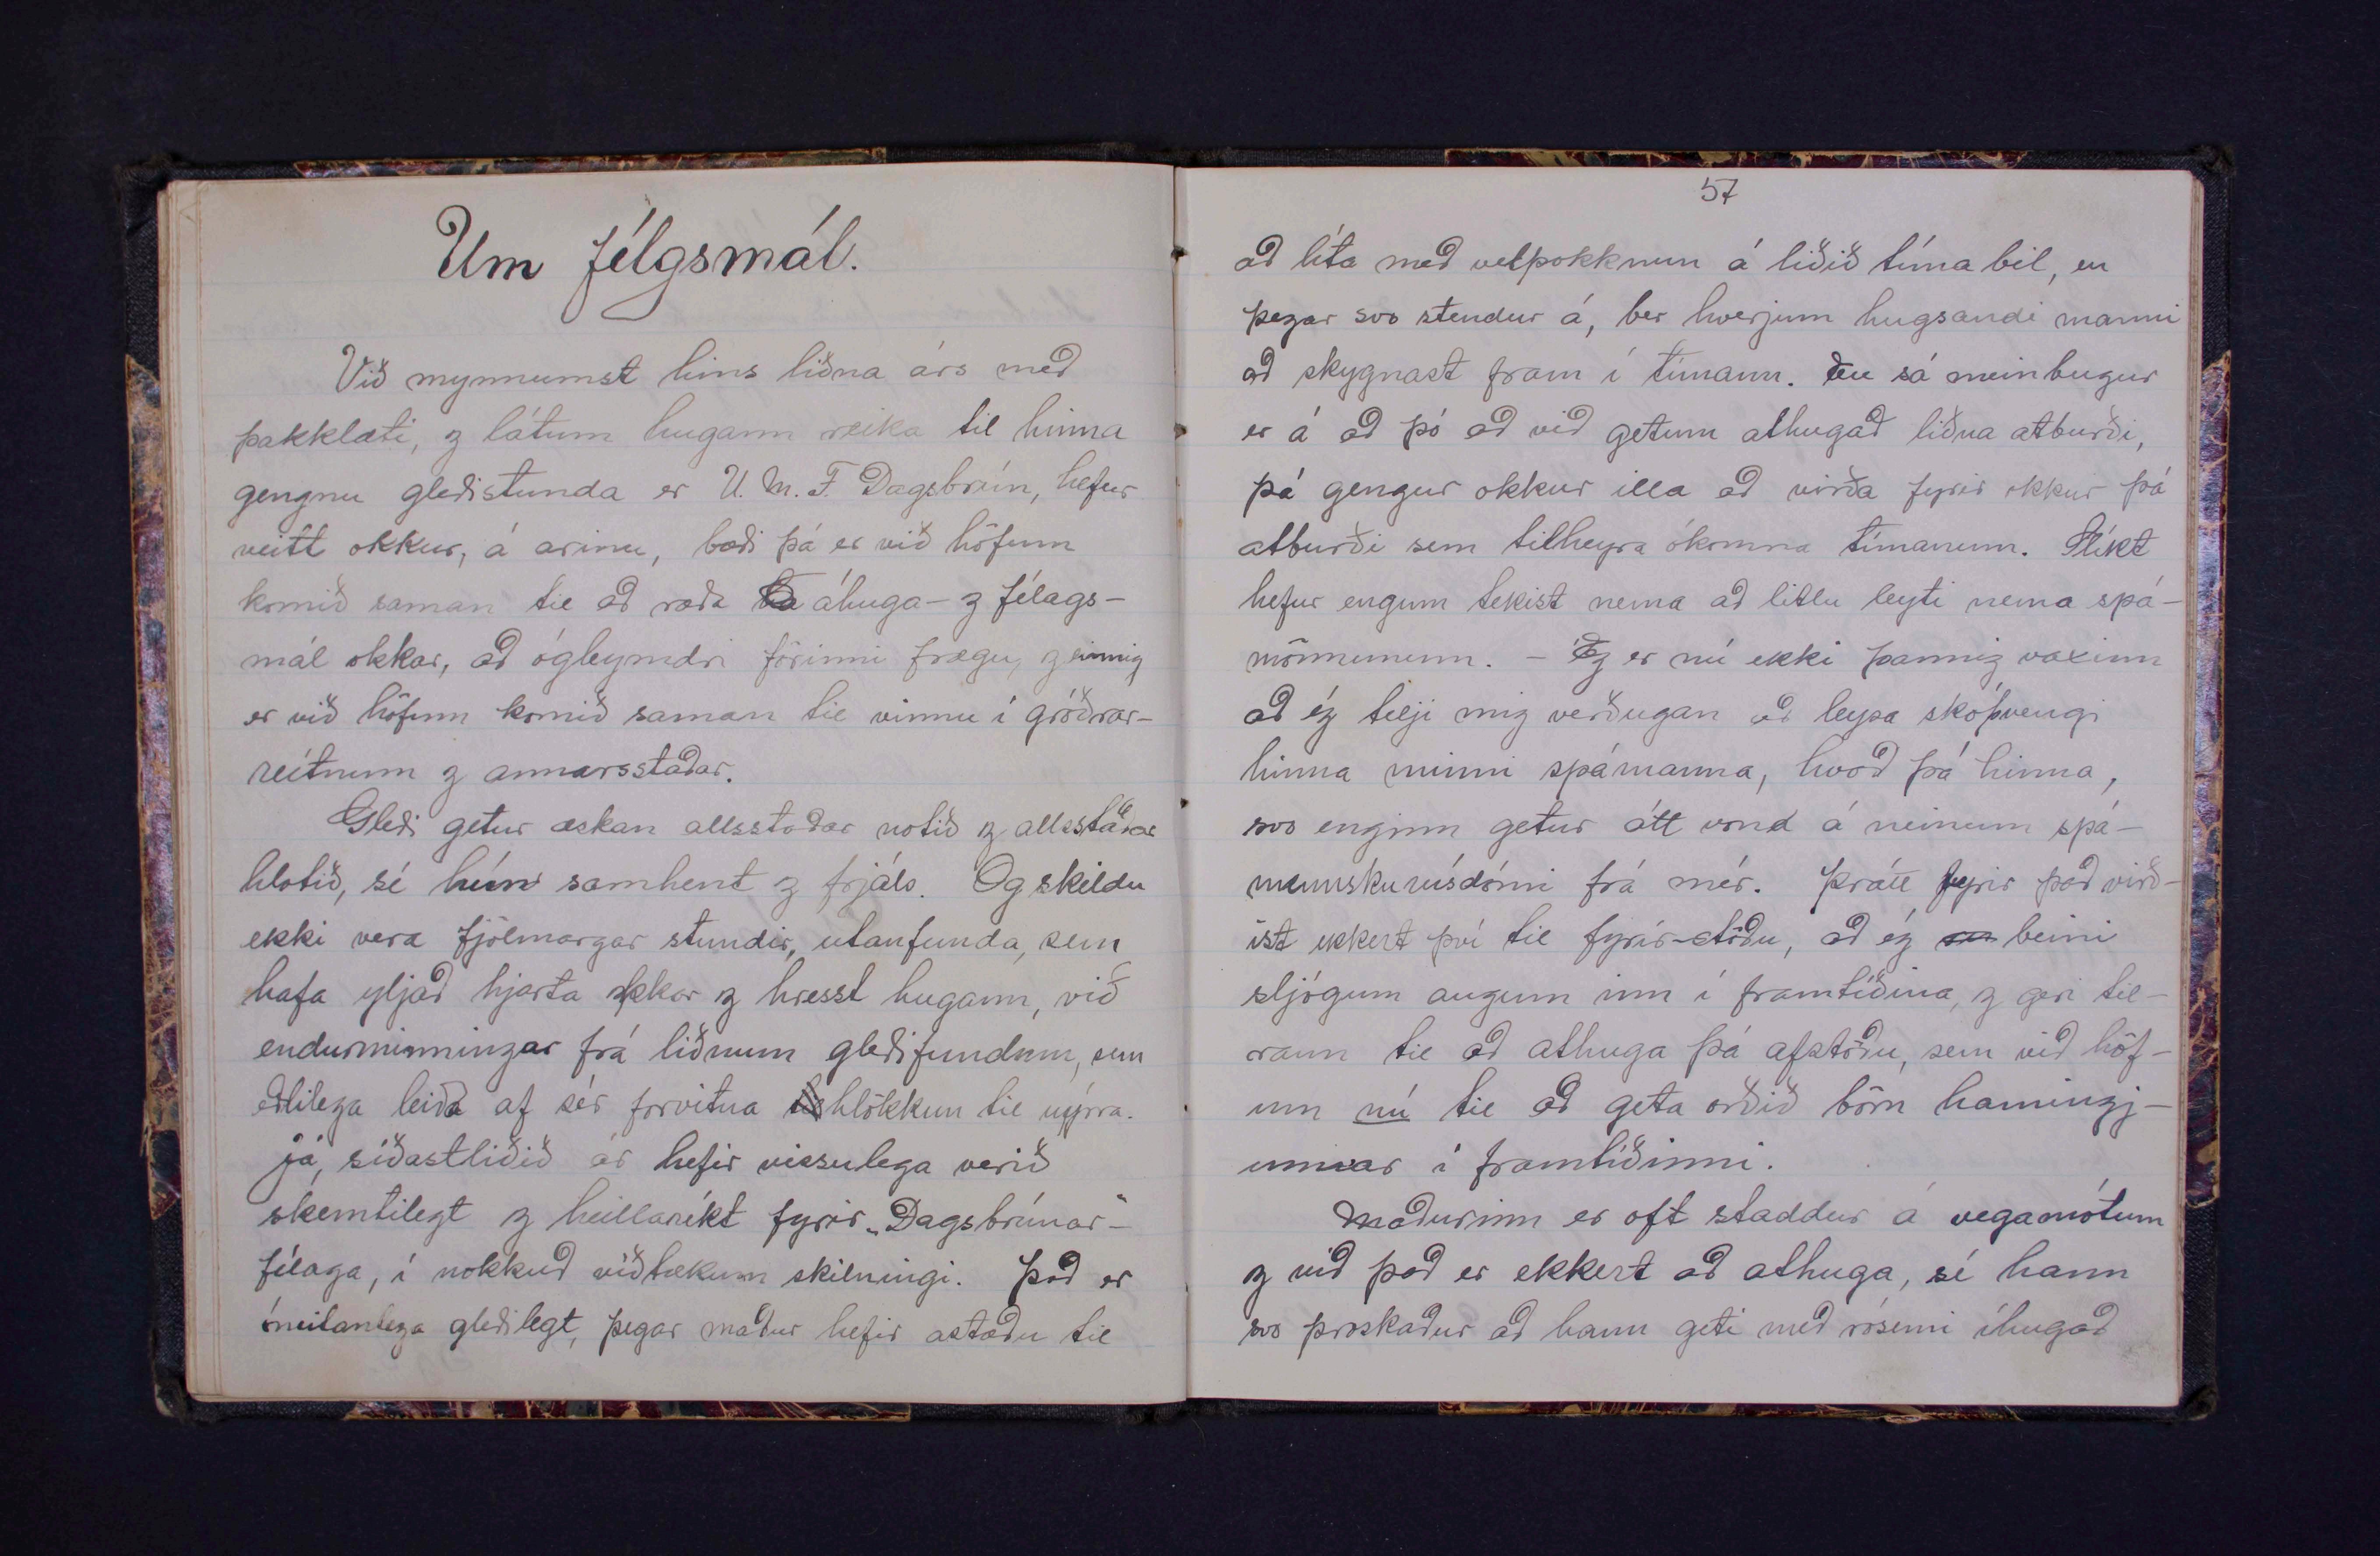 Um félgsmál.
Við mynnumst hins liðna árs með
þakklæti, z látum hugann reika til hinna
gengnu gleðistunda er U. M. F. Dagsbrún, hefur
veitt okkur, á arinu, bæði þá er við höfum
komið saman til að ræða áhuga- z félags-
mál okkar, að ógleymdri förinni frægu, z einnig
er við höfum komið saman til vinnu í gróðrar-
reitnum z annarsstaðar.
Gleði getur æskan allsstaðar notið z allsstaðar
hlotið, sé hún samhent z frjáls. Og skildu
ekki vera fjölmargar stundir, utanfunda, sem
hafa yljað hjarta okkar z hresst hugann, við
endurminningar frá liðnum gleðifundum, sem
eðlilega leiða af sér forvitna hlökkun til nýrra.
Já, síðastliðið ár hefir vissulega verið
skemtilegt z heillaríkt fyrir „Dagsbrúnar"-
félaga, í nokkuð víðtækum skilningi. Það er
óneitanlega gleðilegt, þegar maður hefir astæðu til
57
að líta með velþokknun á liðið tímabil, en
þegar svo stendur á, ber hverjum hugsandi manni
að skygnast fram í tímann. En sá meinbugur
er á að þó að við getum athugað liðna atburði,
þá gengur okkur illa að virða fyrir okkur þá
atburði sem tilheyra ókomna tímanum. Slíkt
hefur engum tekist nema að litlu leyti nema spá-
mönnunum. - Eg er nú ekki þannig vaxinn
að ég telji mig verðugan að leysa skóþvengi
hinna minni spámanna, hvað þá hinna,
svo enginn getur átt vond á neinum spá-
mannskuvísdómi frá mér. Þrátt fyrir það virð-
ist ekkert því til fyrir-stöðu, að ég beini
sljógum augum inn í framtíðina, z geri til-
raun til að athuga þá afstöðu, sem við höf-
um nú til að geta orðið börn hamingj-
unnar í framtíðinni.
Maðurinn er oft staddur á vegamótum
z við það er ekkert að athuga, sé hann
svo þroskaður að hann geti með rósemi íhugað